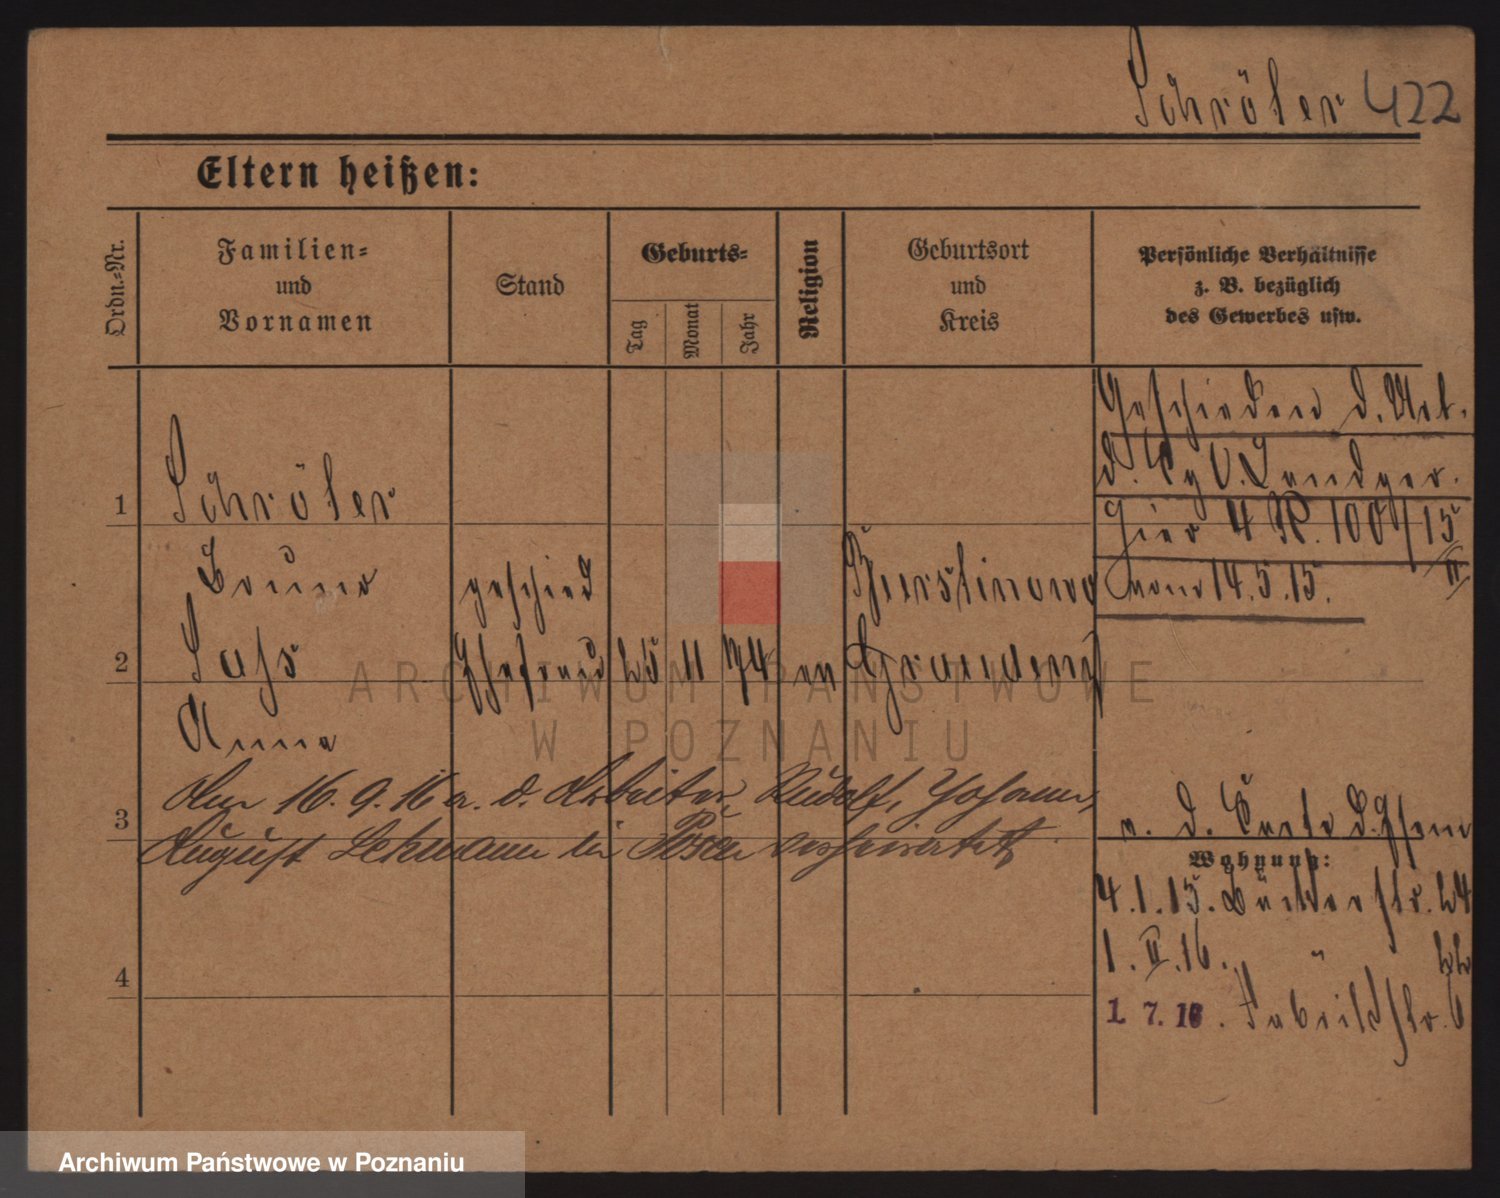 Schröter 422
Eltern heißen:
Ordn.-Nr.
Familien-
und
Vornamen
Stand
Geburts-
Tag
Monat
Jahr
Religion
Geburtsort
und
Kreis
Persönliche Verhältnisse
z. B. bezüglich
des Gewerbes usw.
Geschieden d. Urt.
d. Kgl. Landger.
hier 4 R. 100/15
vom 14.5.15.
II
1 Schröter
Bruno geschied
2 Sass Ehefrau 25 11 74 ev Graudenz
Anna
Am 16. 9. 16 m. d. Arbeiter, Rudolf, Johann,
3 August Lehmann in Posen verheiratet
a. d. Karte d. Ehem
Wohnung:
4.1.15. Bäckerstr. 24
1. II. 16. " 22
4
1. 7. 16. Fabrikstr. 6
ARCHIWUM PAŃSTWOWE
W POZNANIU
Archiwum Państwowe w Poznaniu